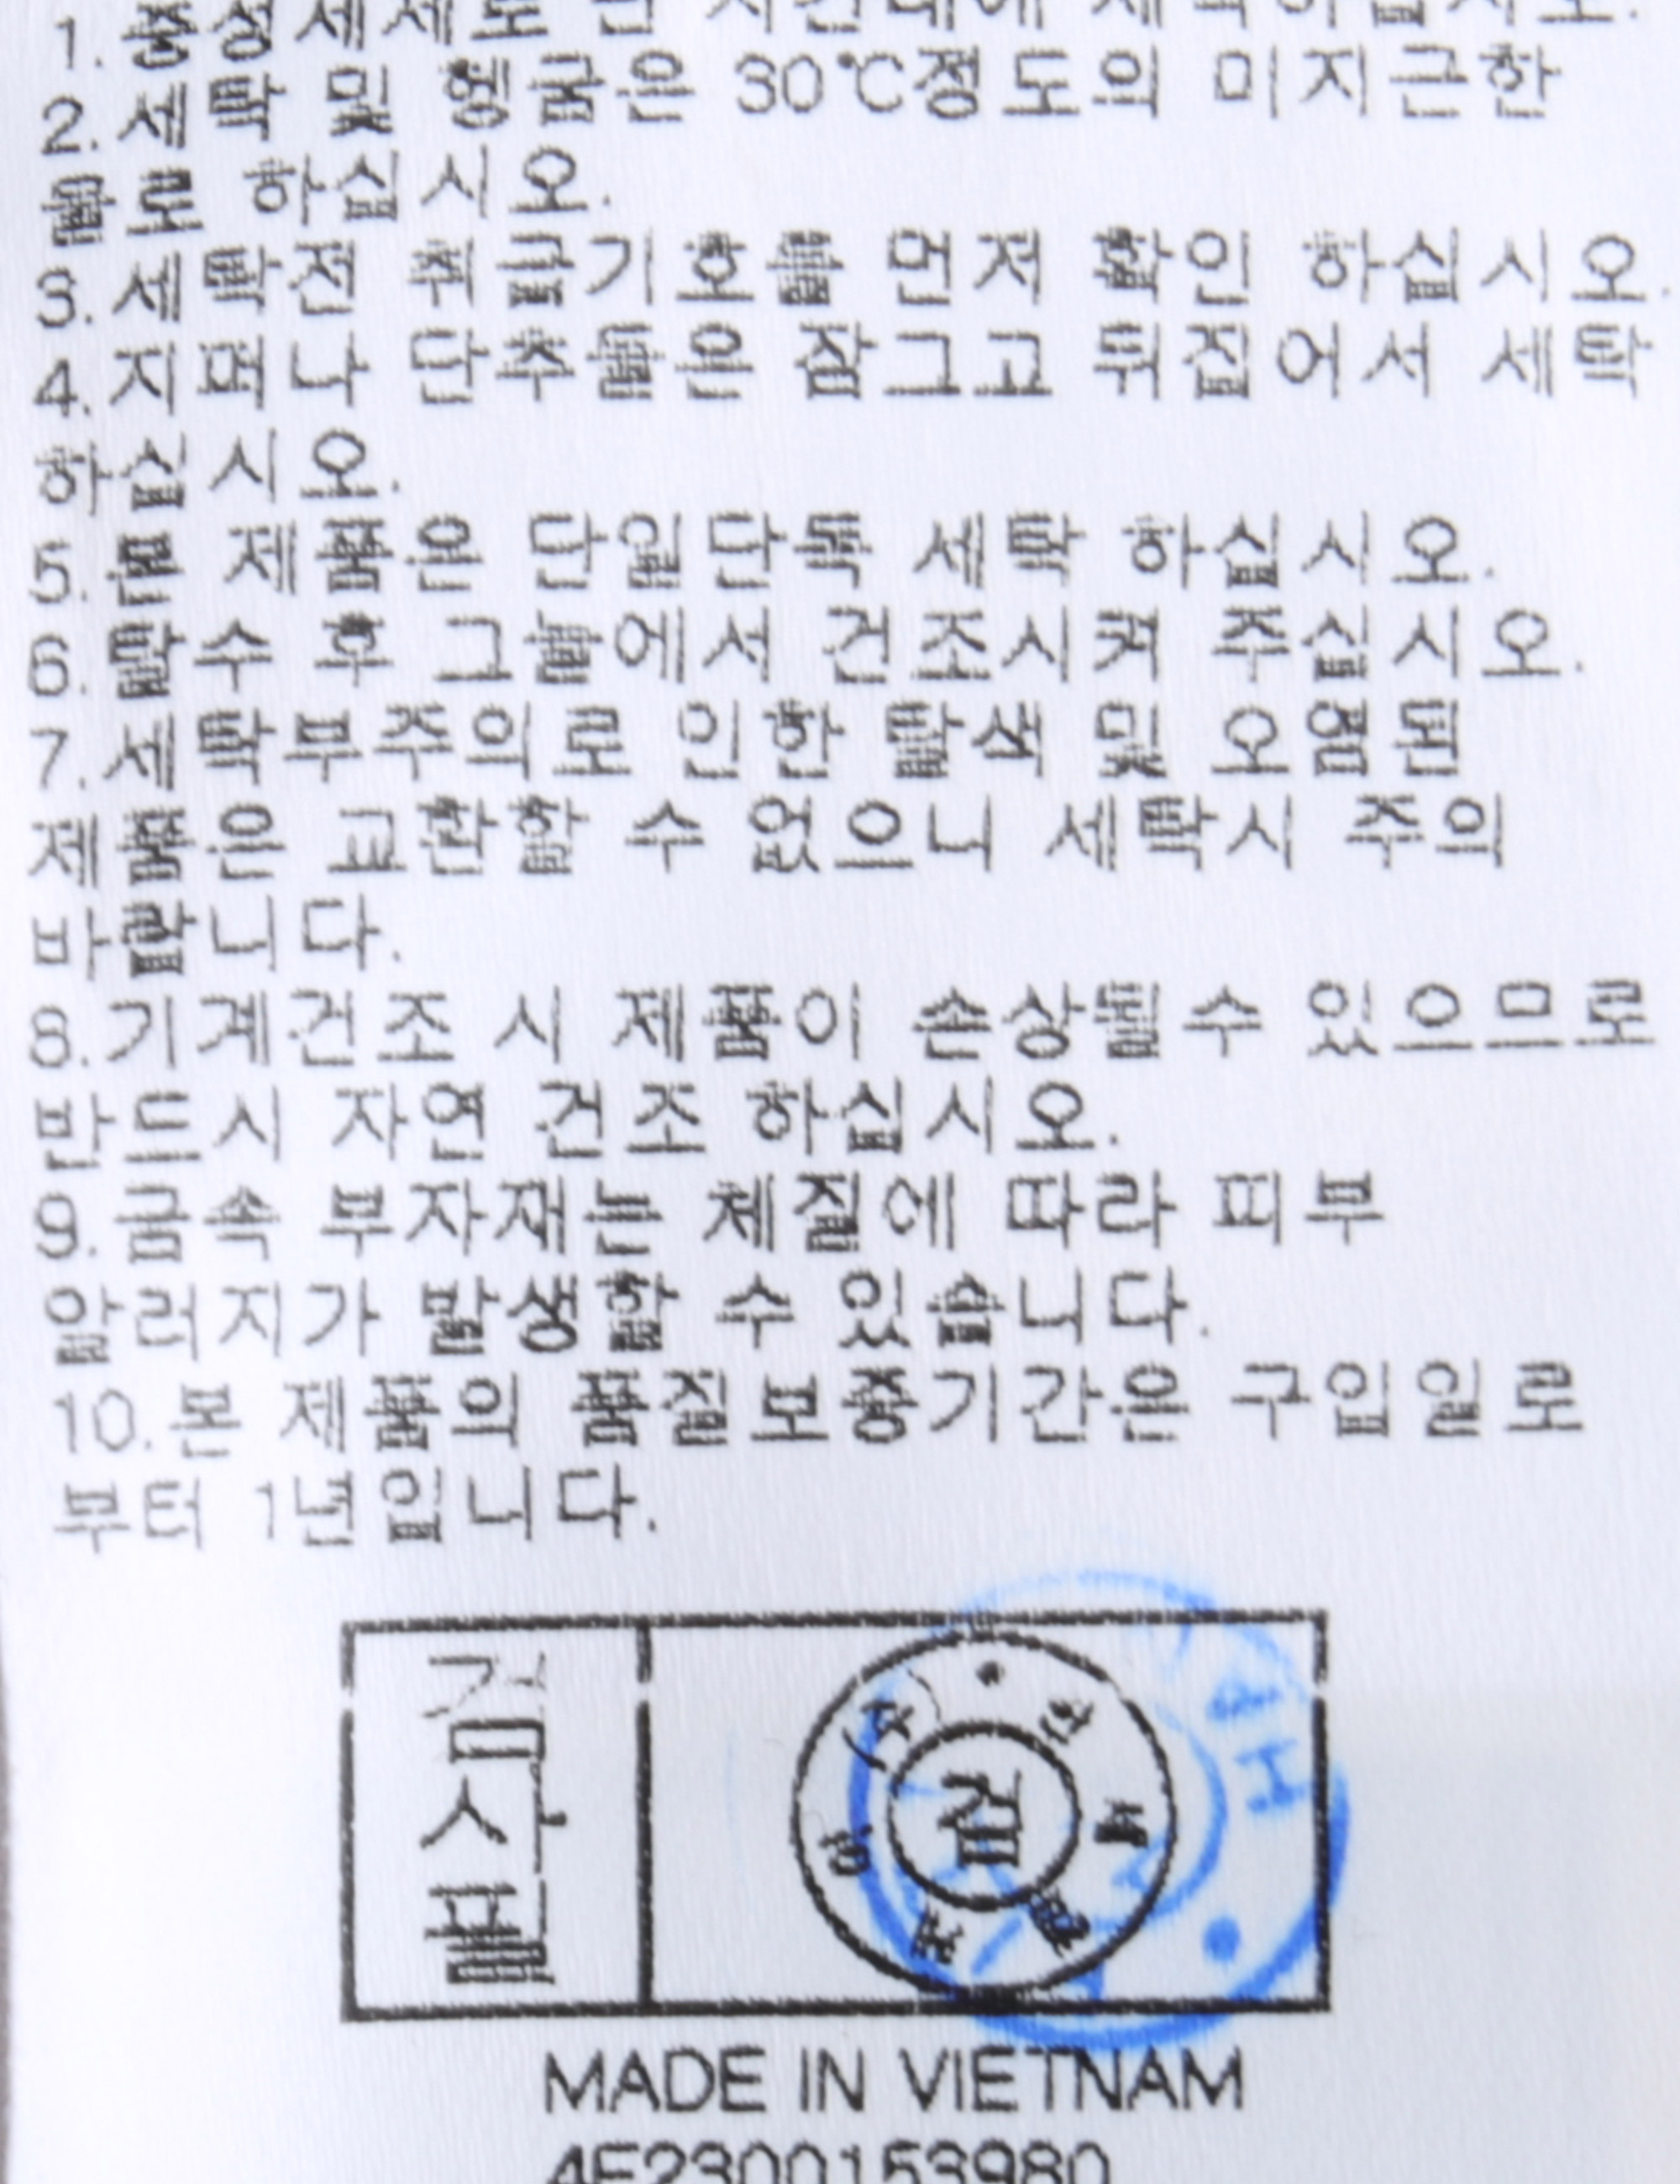 1. 중성세제로 단시간내에 세탁하십시오.
2. 세탁 및 헹굼은 30℃정도의 미지근한
물로 하십시오.
3. 세탁전 취급기호를 먼저 확인 하십시오.
4. 지퍼나 단추들은 잠그고 뒤집어서 세탁
하십시오.
5. 본 제품은 단일단독 세탁 하십시오.
6. 탈수 후 그늘에서 건조시켜 주십시오.
7. 세탁부주의로 인한 탈색 및 오염된
제품은 교환할 수 없으니 세탁시 주의
바랍니다.
8. 기계건조 시 제품이 손상될수 있으므로
반드시 자연 건조 하십시오.
9. 금속 부자재는 체질에 따라 피부
알러지가 발생할 수 있습니다.
10. 본 제품의 품질보증기간은 구입일로
부터 1년입니다.
검사필
검
MADE IN VIETNAM
4F2300153980